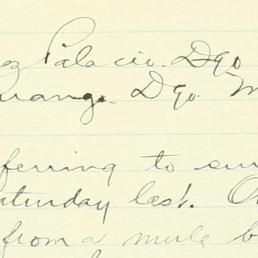 oz Palacio. Dgo
urango. Dgo. M
ferring to sur
aturday last. O
from a mule b